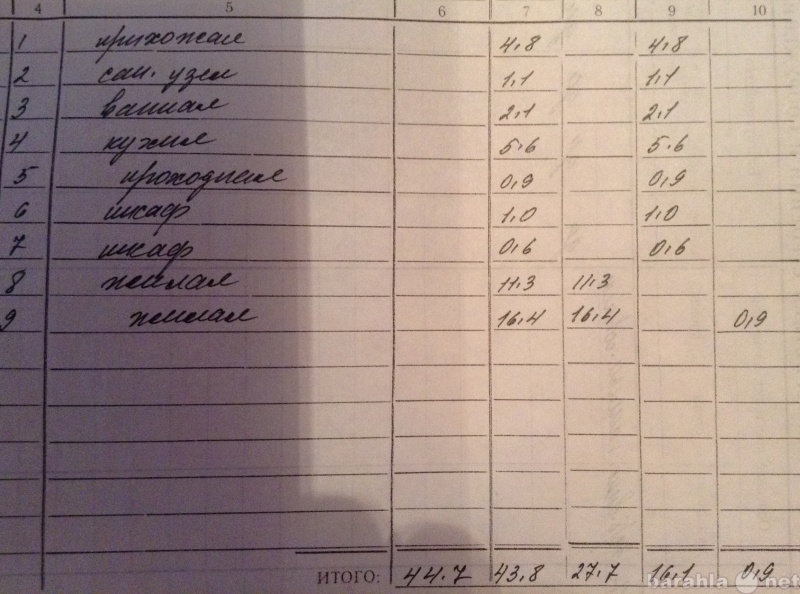 4 5 6 7 8 9 10
1 прихожая 4,8 4,8
2 сан. узел 1,1 1,1
3 ванная 2,1 2,1
4 кухня 5,6 5,6
5 проходная 0,9 0,9
6 шкаф 1,0 1,0
7 шкаф 0,6 0,6
8 жилая 11,3 11,3
9 жилая 16,4 16,4 0,9
ИТОГО: 44,7 43,8 27,7 16,1 0,9
barahla.net